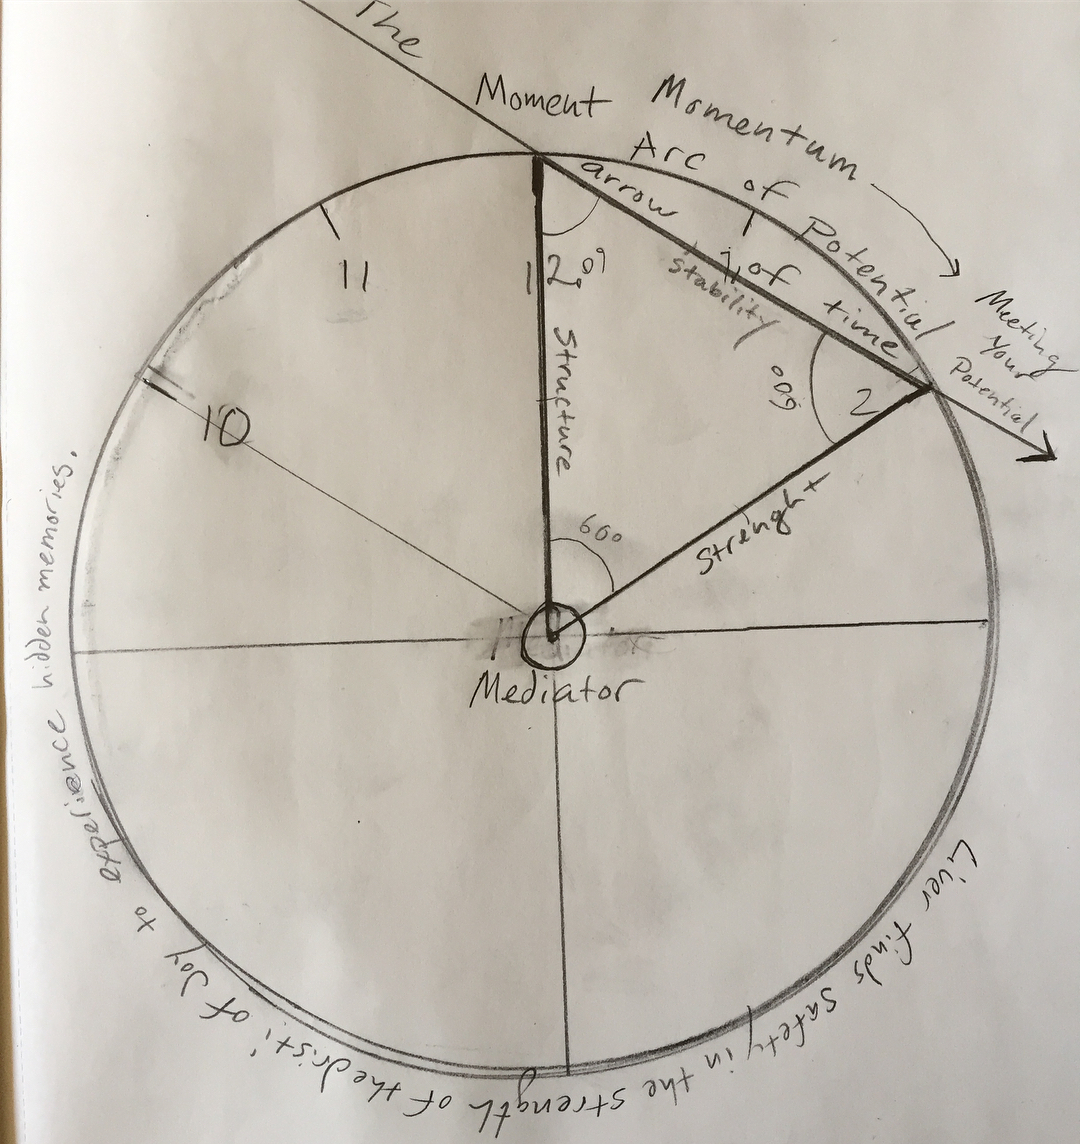 The
Moment
Momentum
Arc of Potential
arrow of time
Meeting
Your
Potential
11
12
1
60°
stability
2
60°
10
Structure
60°
Strenght
Mediator
Liver finds safety in the strength of the dristi of Joy to experience hidden memories.